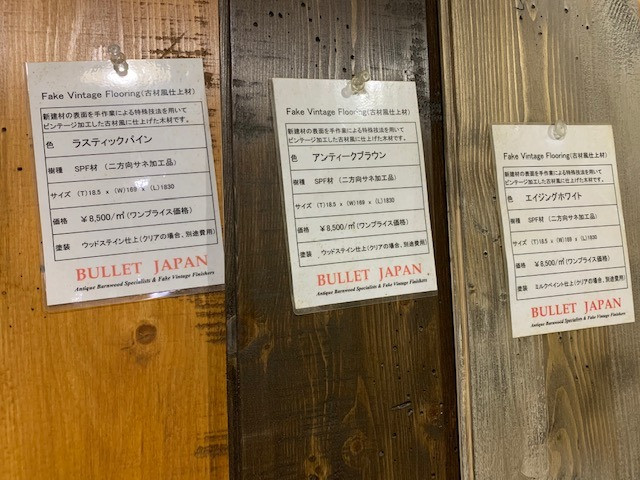 Fake Vintage Flooring(古材風仕上材)
新建材の表面を手作業による特殊技法を用いて
ビンテージ加工した古材風に仕上げた木材です。
色 ラスティックパイン
樹種 SPF材 (二方向サネ加工品)
サイズ (T)18.5 x (W)169 x (L)1830
価格 ¥8,500/㎡(ワンプライス価格)
塗装 ウッドステイン仕上(クリアの場合、別途費用)
BULLET JAPAN
Antique Barnwood Specialists & Fake Vintage Finishers
Fake Vintage Flooring(古材風仕上材)
新建材の表面を手作業による特殊技法を用いて
ビンテージ加工した古材風に仕上げた木材です。
色 アンティークブラウン
樹種 SPF材 (二方向サネ加工品)
サイズ (T)18.5 x (W)169 x (L)1830
価格 ¥8,500/㎡(ワンプライス価格)
塗装 ウッドステイン仕上(クリアの場合、別途費用)
BULLET JAPAN
Antique Barnwood Specialists & Fake Vintage Finishers
Fake Vintage Flooring(古材風仕上材)
新建材の表面を手作業による特殊技法を用いて
ビンテージ加工した古材風に仕上げた木材です。
色 エイジングホワイト
樹種 SPF材 (二方向サネ加工品)
サイズ (T)18.5 x (W)169 x (L)1830
価格 ¥8,500/㎡(ワンプライス価格)
塗装 ミルクペイント仕上(クリアの場合、別途費用)
BULLET JAPAN
Antique Barnwood Specialists & Fake Vintage Finishers